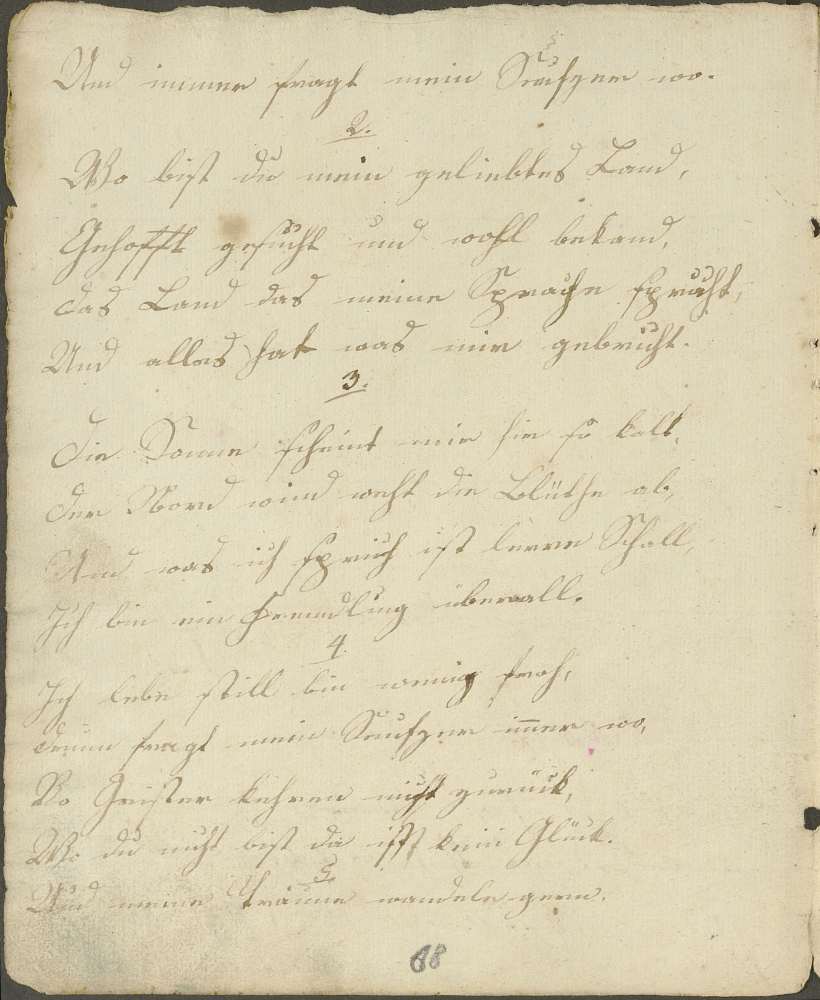 Und immer fragt mein Seufzer wo.
2.
Wo bist du mein geliebtes Land,
Gehofft gesucht und wohl bekand,
das Land das meine Sprache spricht,
Und alles hat was mir gebricht.
3.
Die Sonne scheint mir hir so kalt,
der Nord wind weht die Blüthe ab,
Und was ich sprich ist leere Schall,
Ich bin ein Fremdling überall.
4.
Ich lebe still bin wenig froh,
drum fragt mein Seufzer im̄er wo,
Wo Geister kehren nicht zurück,
Wo du nicht bist da ist kein Glück.
5.
Und meine träume wandeln gern.
68